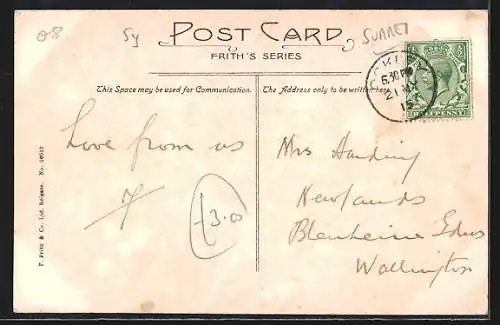 08
Sy
POST CARD
SURREY
FRITH'S SERIES
This Space may be used for Communication.
The Address only to be written here.
6.30 PM
21
HALFPENNY
Love from us
7
£3.00
Mrs Harding
Newlands
Blenheim Gdns
Wallington
F. Frith & Co. Ltd. Reigate. No.